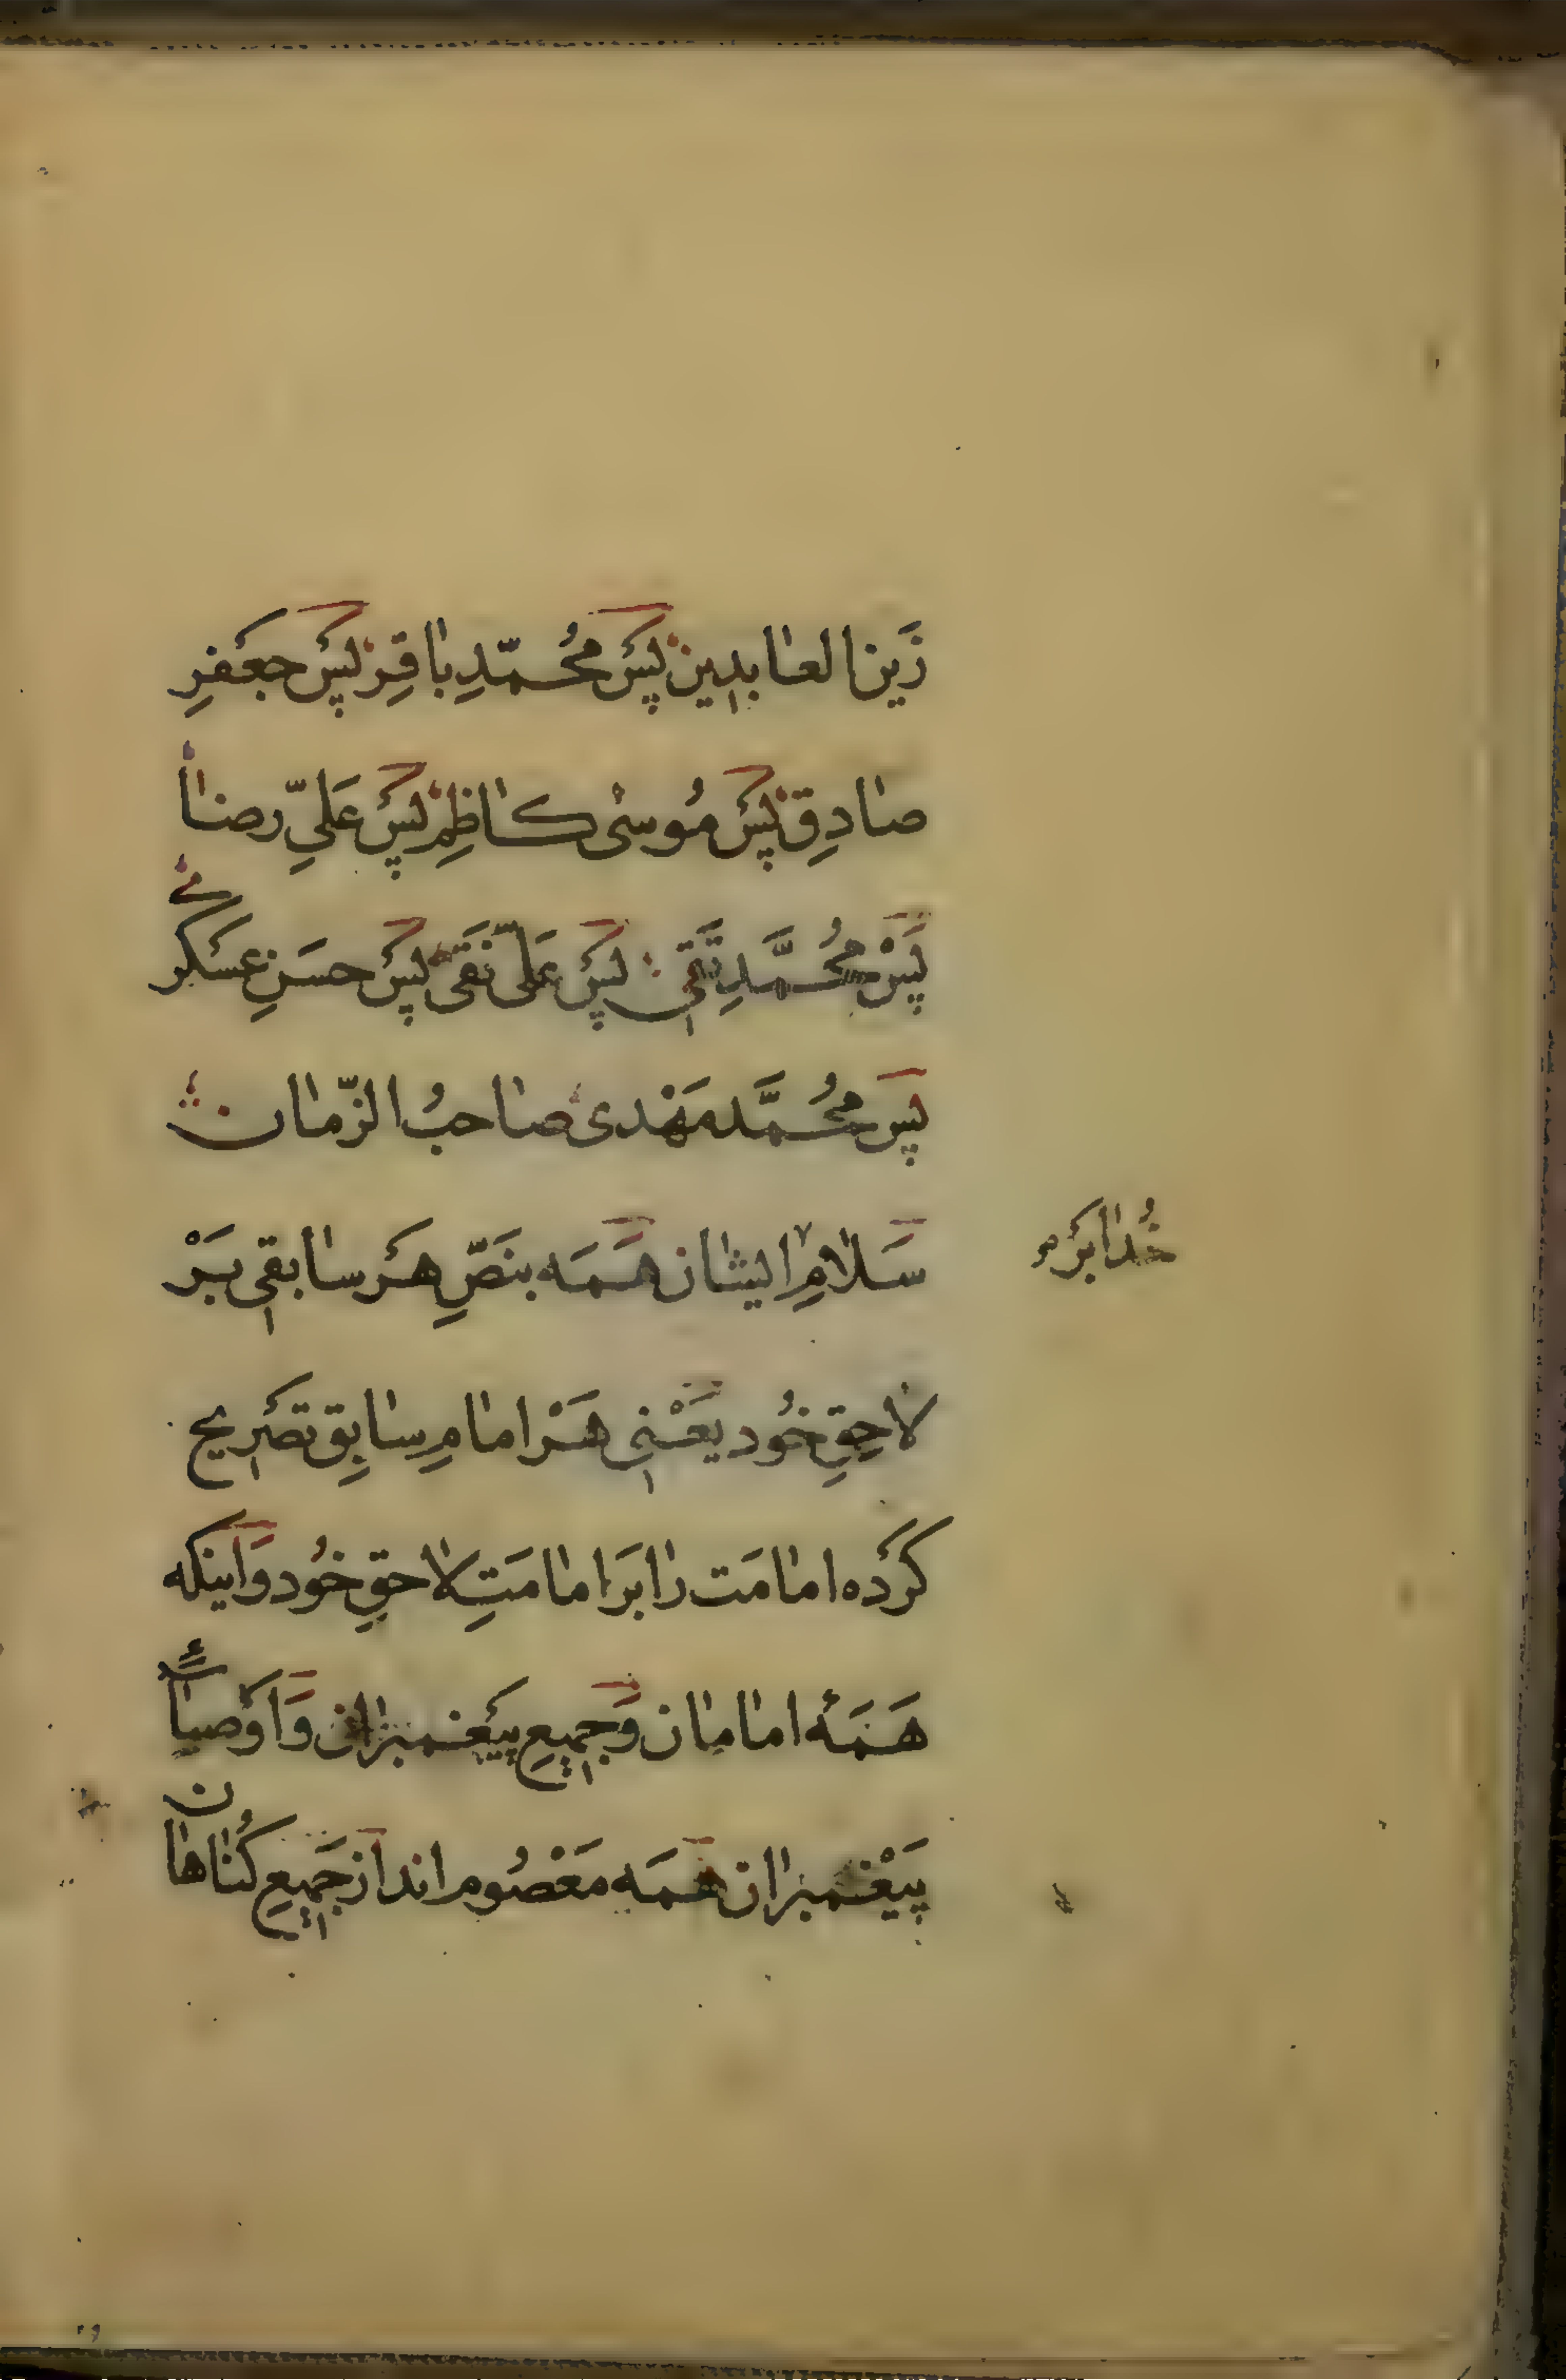 زَین العابدِین پَس مُحمّدِ باقِر پَس جَعفَرِ
صادِق پَس مُوسیٰ کاظِم پَس عَلیِّ رضا
پَس مُحَمَّدِ تَقی پَس عَلیّ نَقی پَس حسَنِ عسکری
پس مُحَمَّد مَهْدی صاحبُ الزّمان
خُدا بَر
سَلامِ ایشان هَمَه بنَصِّ هَر سابقی بَرْ
لاحِقِ خُود یَعْنی هَر امامِ سابِق تصَریح
کَردَه امامَت را بَر امامَتِ لاحقِ خُود وَ اینکه
هَمَهٔ امامان وَ جَمیعِ پَیغمبران وَ اَوْصیاءِ
پَیْغمبران هَمَه مَعْصُوم اند از جَمیعِ کُناهان